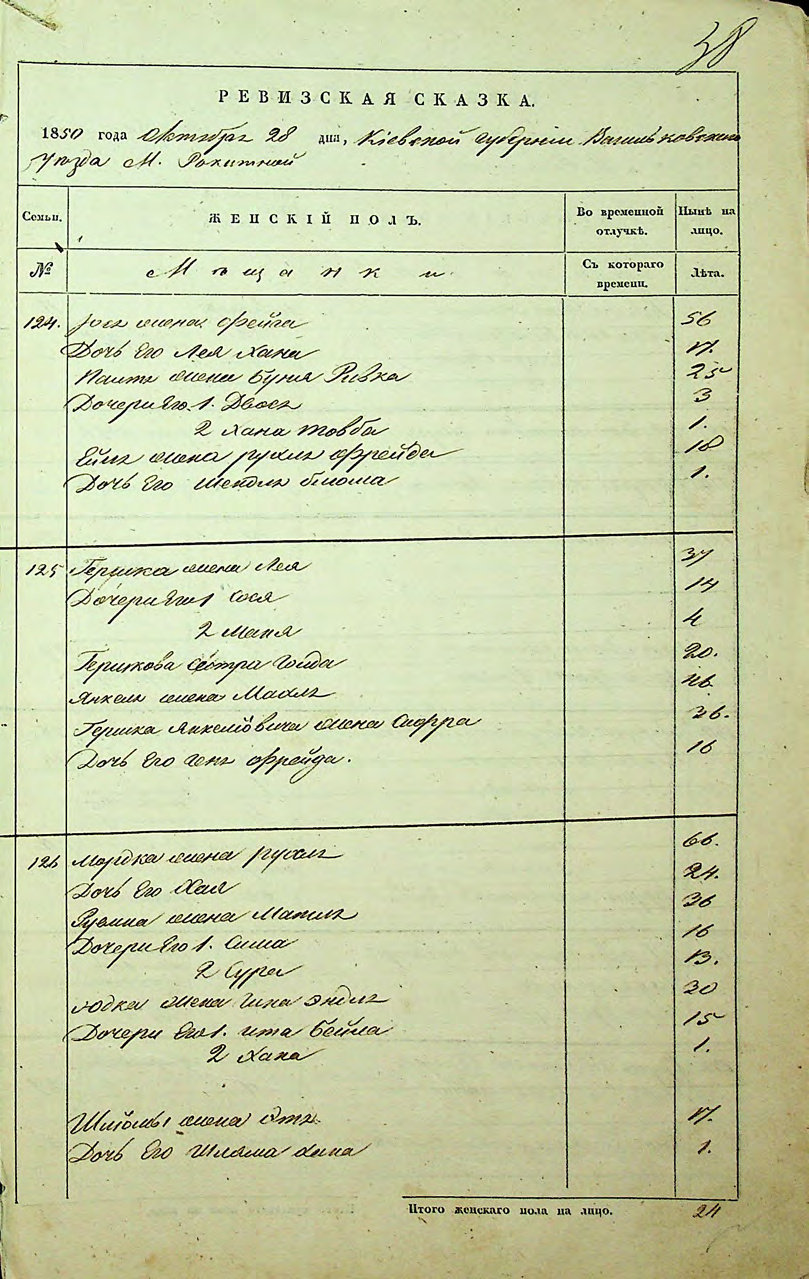 38
РЕВИЗСКАЯ СКАЗКА.
1850 года Октября 28 дня, Кіевской Губерніи Васильковскаго
уезда М. Рокитной
Семьи. ЖЕНСКІЙ ПОЛЪ. Во временной отлучкѣ. Нынѣ на лицо.
№ Мѣщанки Съ котораго времени. Лѣта.
124. жена Фейга 56
Дочь Его Лея Хана 17.
жена Буня Ривка 25
Дочери Его 1. Двося 3
2 Хана Товба 1.
жена Рухля Фрейда 18
Дочь Его Шендля Блюма 1.
125 Гершка жена Лея 37
Дочери Его 1 Сося 14
2 Маня 4
Гершкова сестра Голда 20.
Янкеля жена Махля
Гершка Янкелëвича жена Сифра 36.
Дочь Его Геня Фрейда. 16
126 Мордка жена Рухля 66.
Дочь Его Хая 24.
Рувина жена 36
Дочери Его 1. Сима 16
2 Сура 13.
Юдка жена Эндля 30
Дочери Его 1. Ита Бейла 15
2 Хана 1.
Шлиомы жена Этя 17.
Дочь Его Хана 1.
Итого женскаго пола на лицо. 24